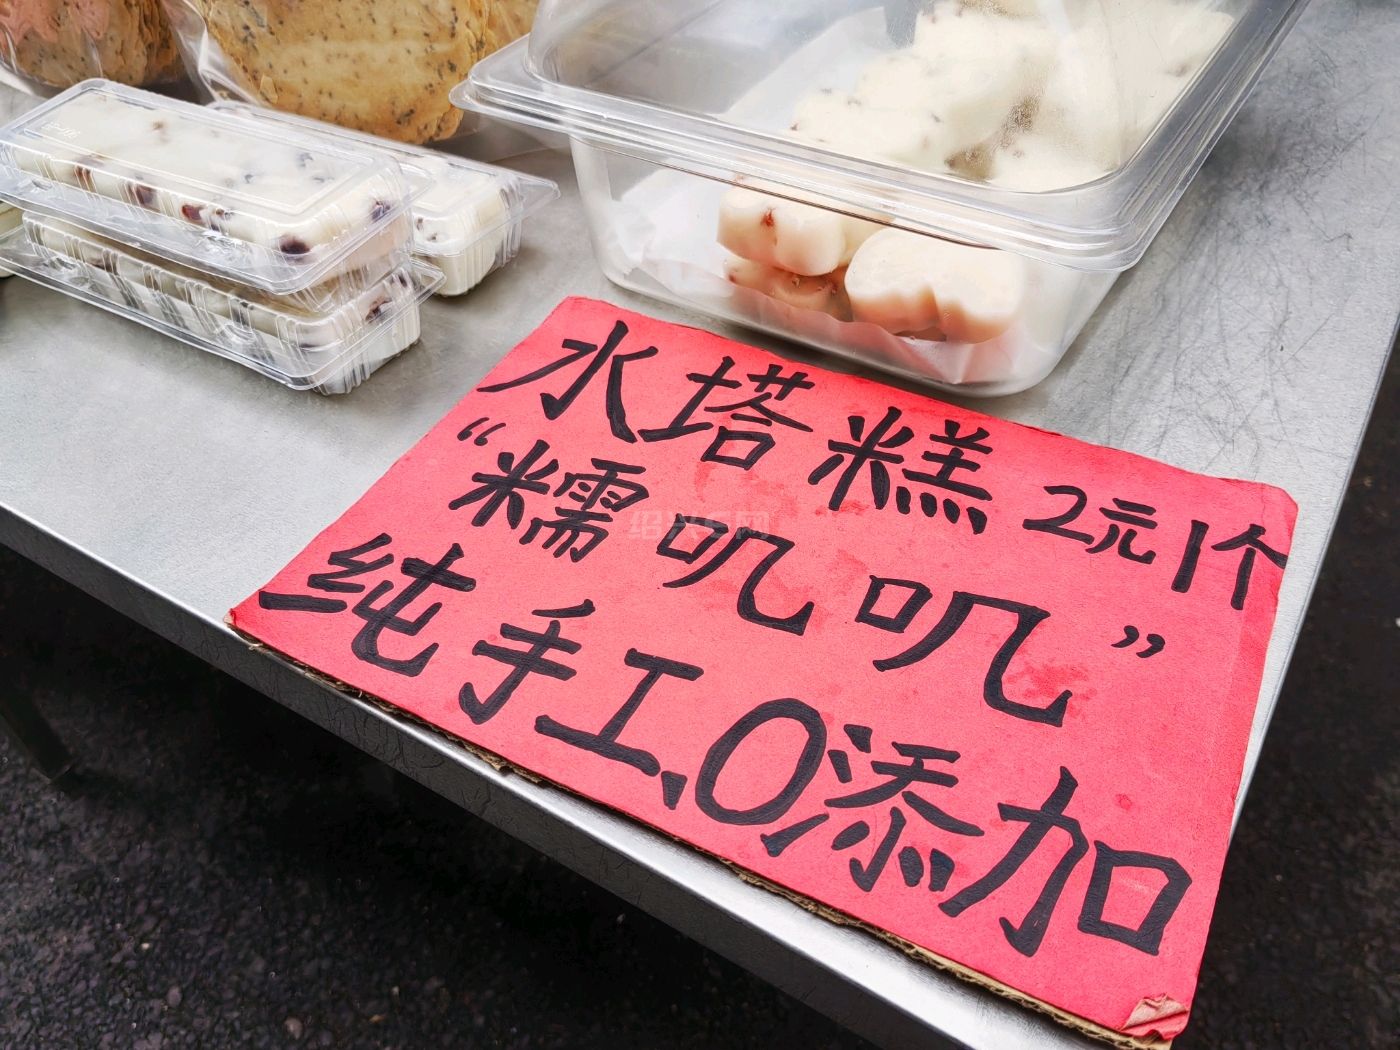 水塔糕 2元1个
“糯叽叽”
纯手工、0添加
绍兴E网